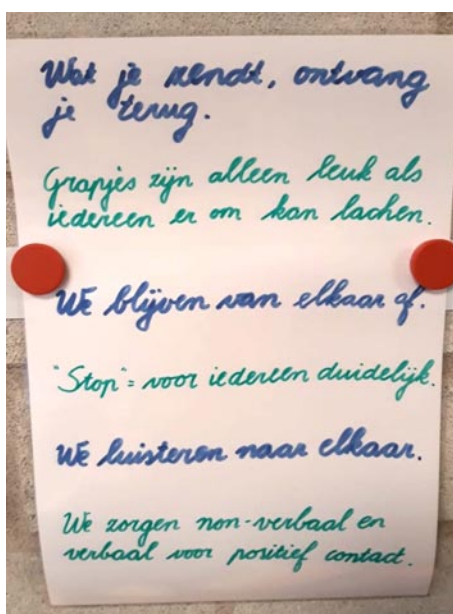 Wat je zendt, ontvang
je terug.
Grapjes zijn alleen leuk als
iedereen er om kan lachen.
We blijven van elkaar af.
"Stop" = voor iedereen duidelijk.
We luisteren naar elkaar.
We zorgen non-verbaal en
verbaal voor positief contact.